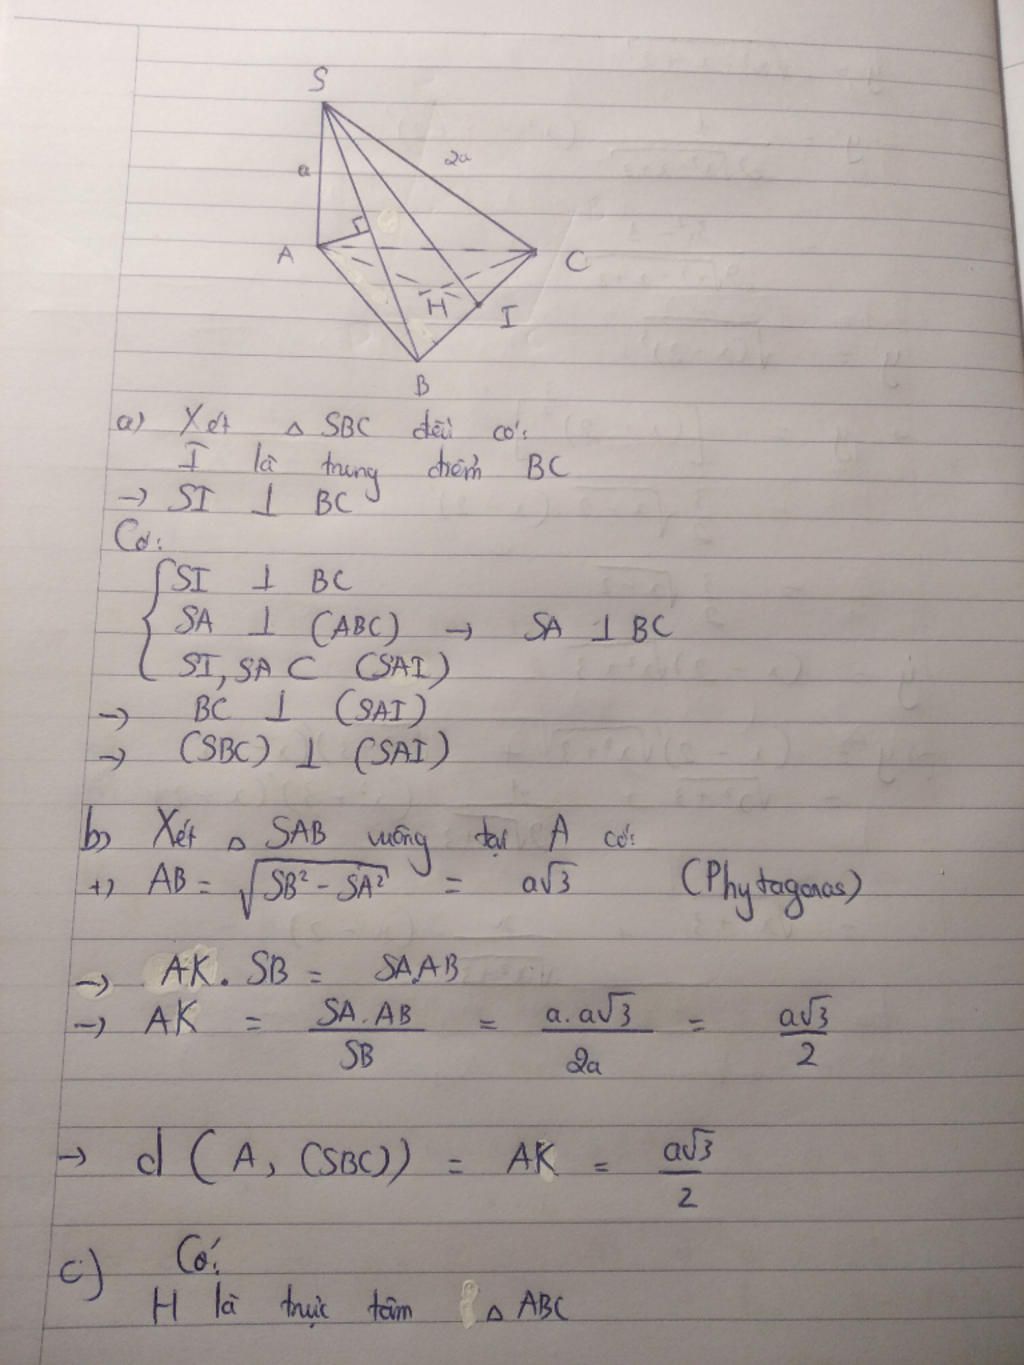 S
a
2a
A
C
H
I
B
a) Xét △ SBC đều có:
I là trung điểm BC
→ SI ⊥ BC
Có:
SI ⊥ BC
SA ⊥ (ABC) → SA ⊥ BC
SI, SA ⊂ (SAI)
→ BC ⊥ (SAI)
→ (SBC) ⊥ (SAI)
b) Xét △ SAB vuông tại A có:
+) AB = √(SB² - SA²) = a√3 (Phytagoras)
→ AK. SB = SA.AB
→ AK = SA.AB / SB = a.a√3 / 2a = a√3 / 2
→ d (A, (SBC)) = AK = a√3 / 2
c) Có:
H là trực tâm △ ABC